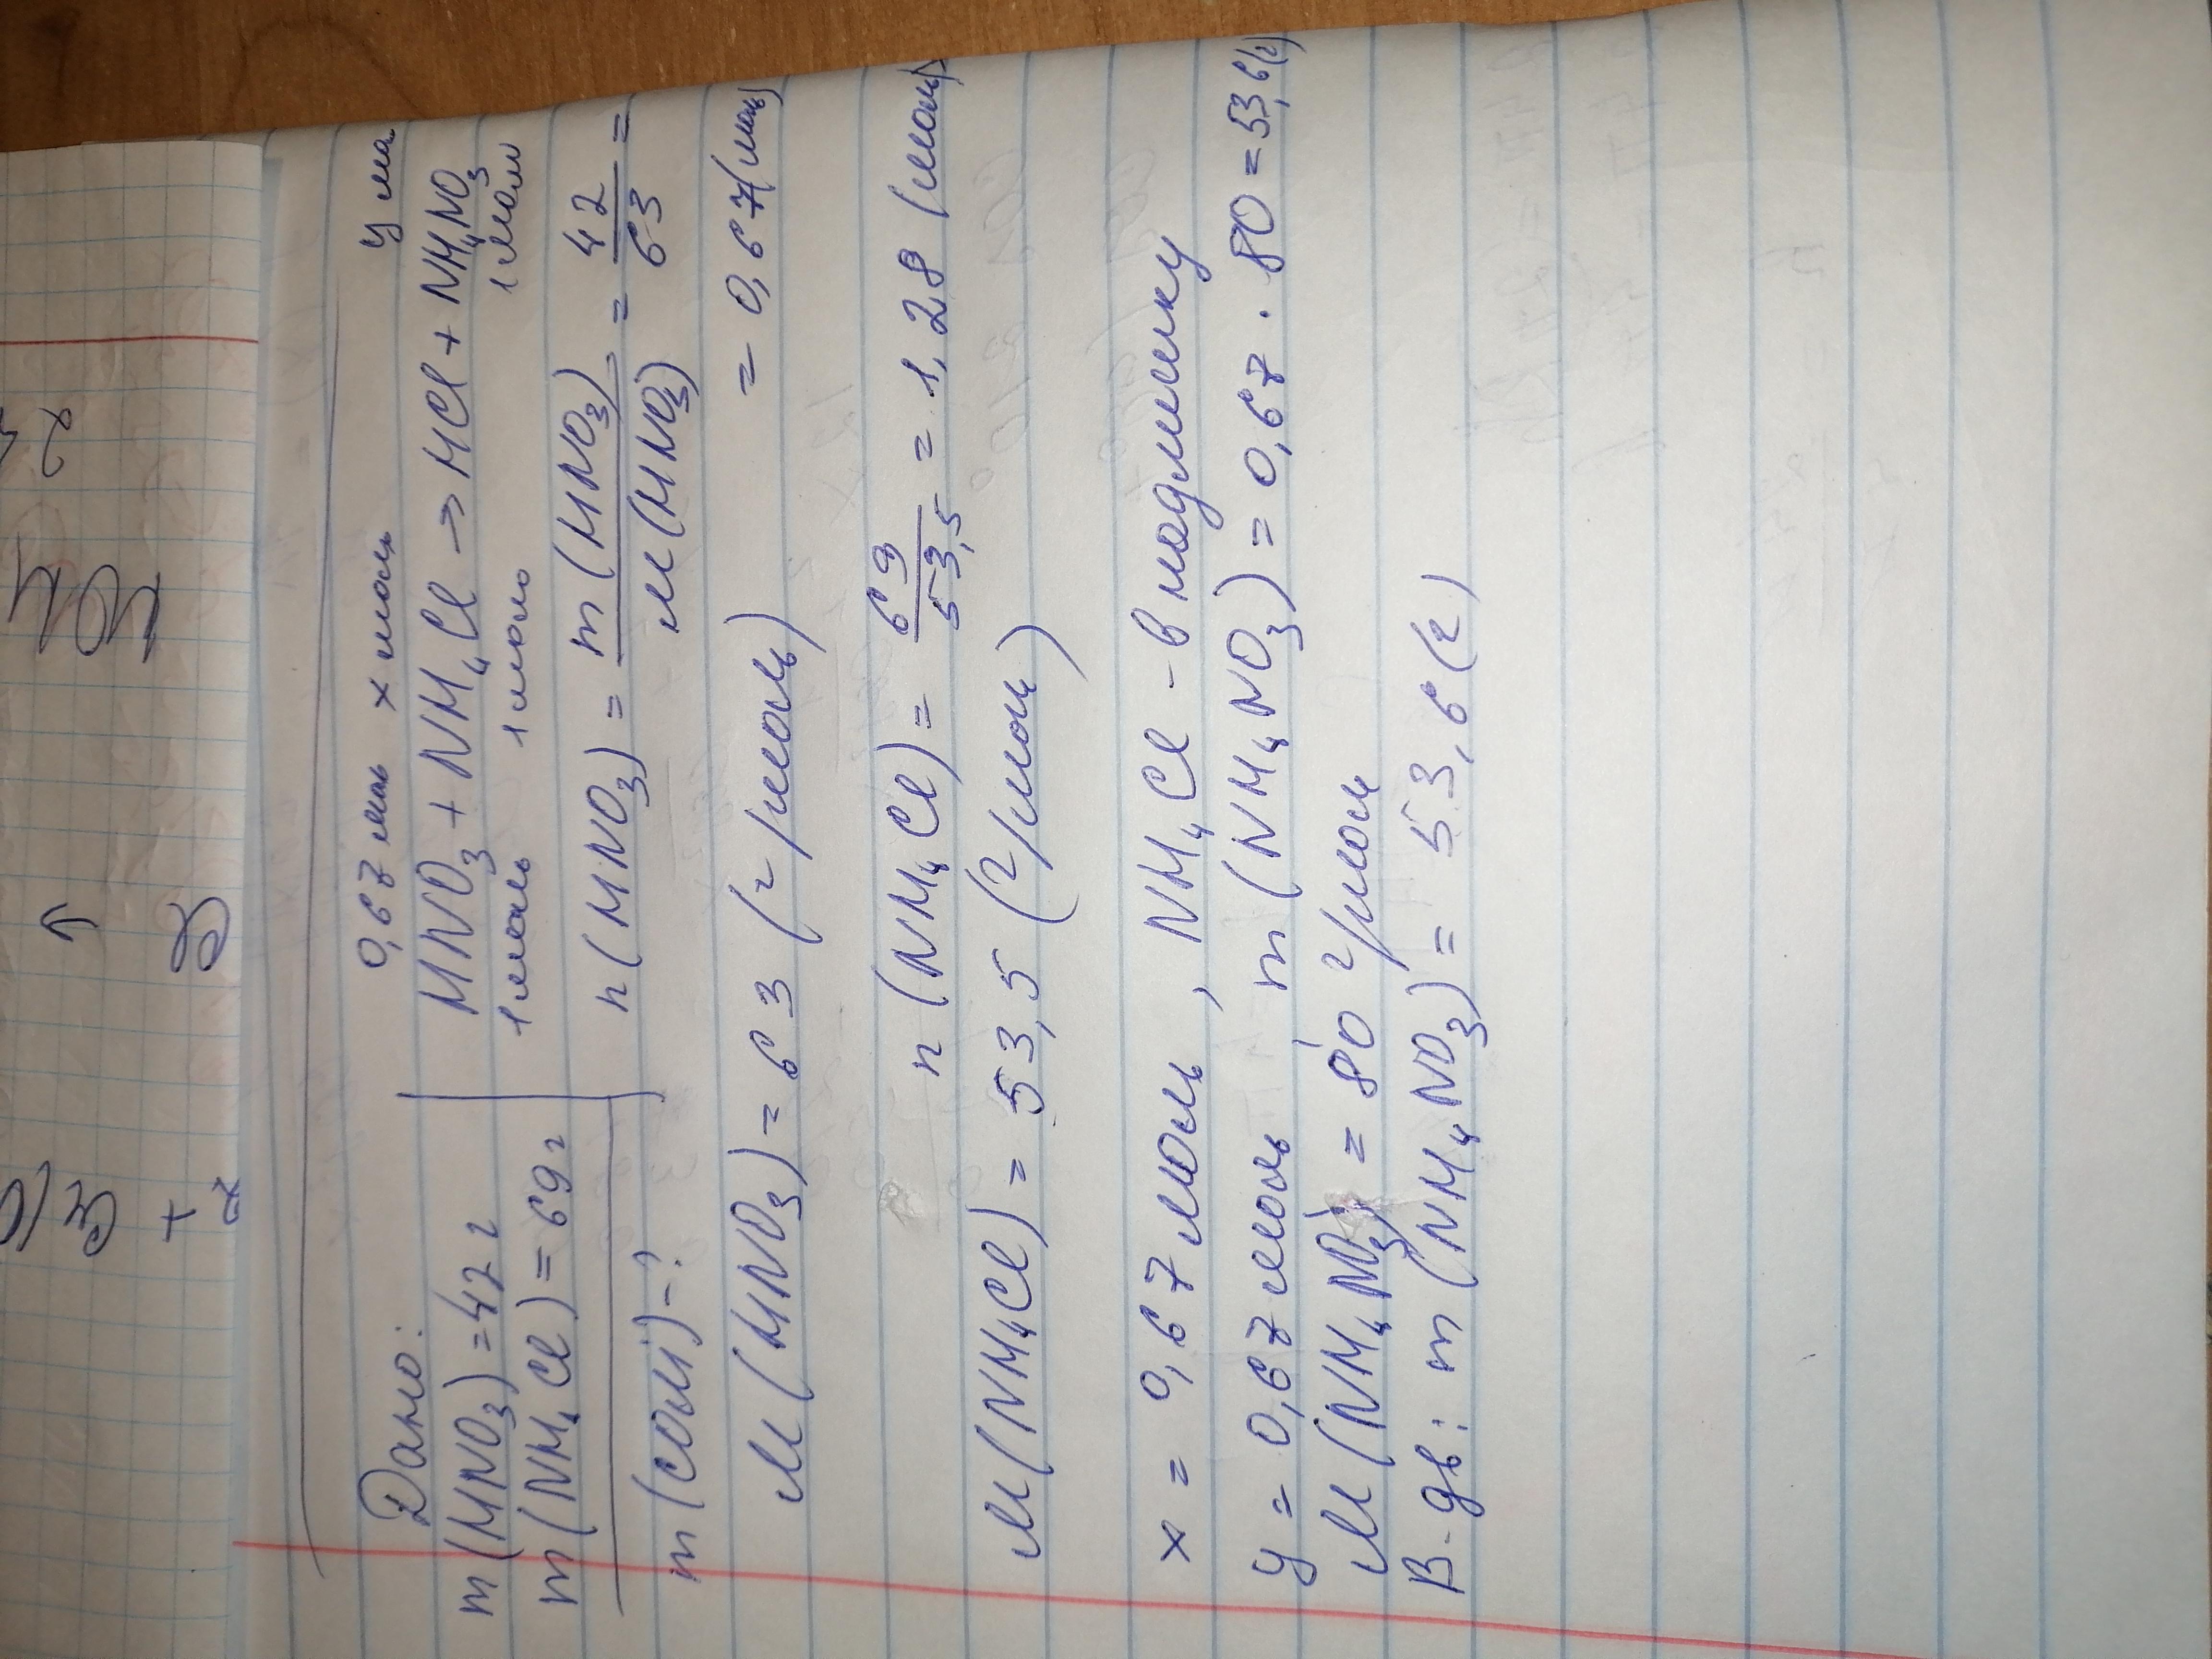 Дано:
m(HNO3)=42 г
m(NH4Cl)=69 г
m(солі)-?
0,67 моль x моль
HNO3 + NH4Cl → HCl + NH4NO3
1 моль 1 моль 1 моль
n(HNO3) = m(HNO3)/M(HNO3) = 42/63 =
M(HNO3) = 63 (г/моль) = 0,67(моль)
n(NH4Cl) = 69/53,5 = 1,28 (моль)
M(NH4Cl) = 53,5 (г/моль)
x = 0,67 моль, NH4Cl - в надлишку
y = 0,67 моль m(NH4NO3) = 0,67 · 80 = 53,6(г)
M(NH4NO3) = 80 г/моль
В-дь: m(NH4NO3) = 53,6(г)